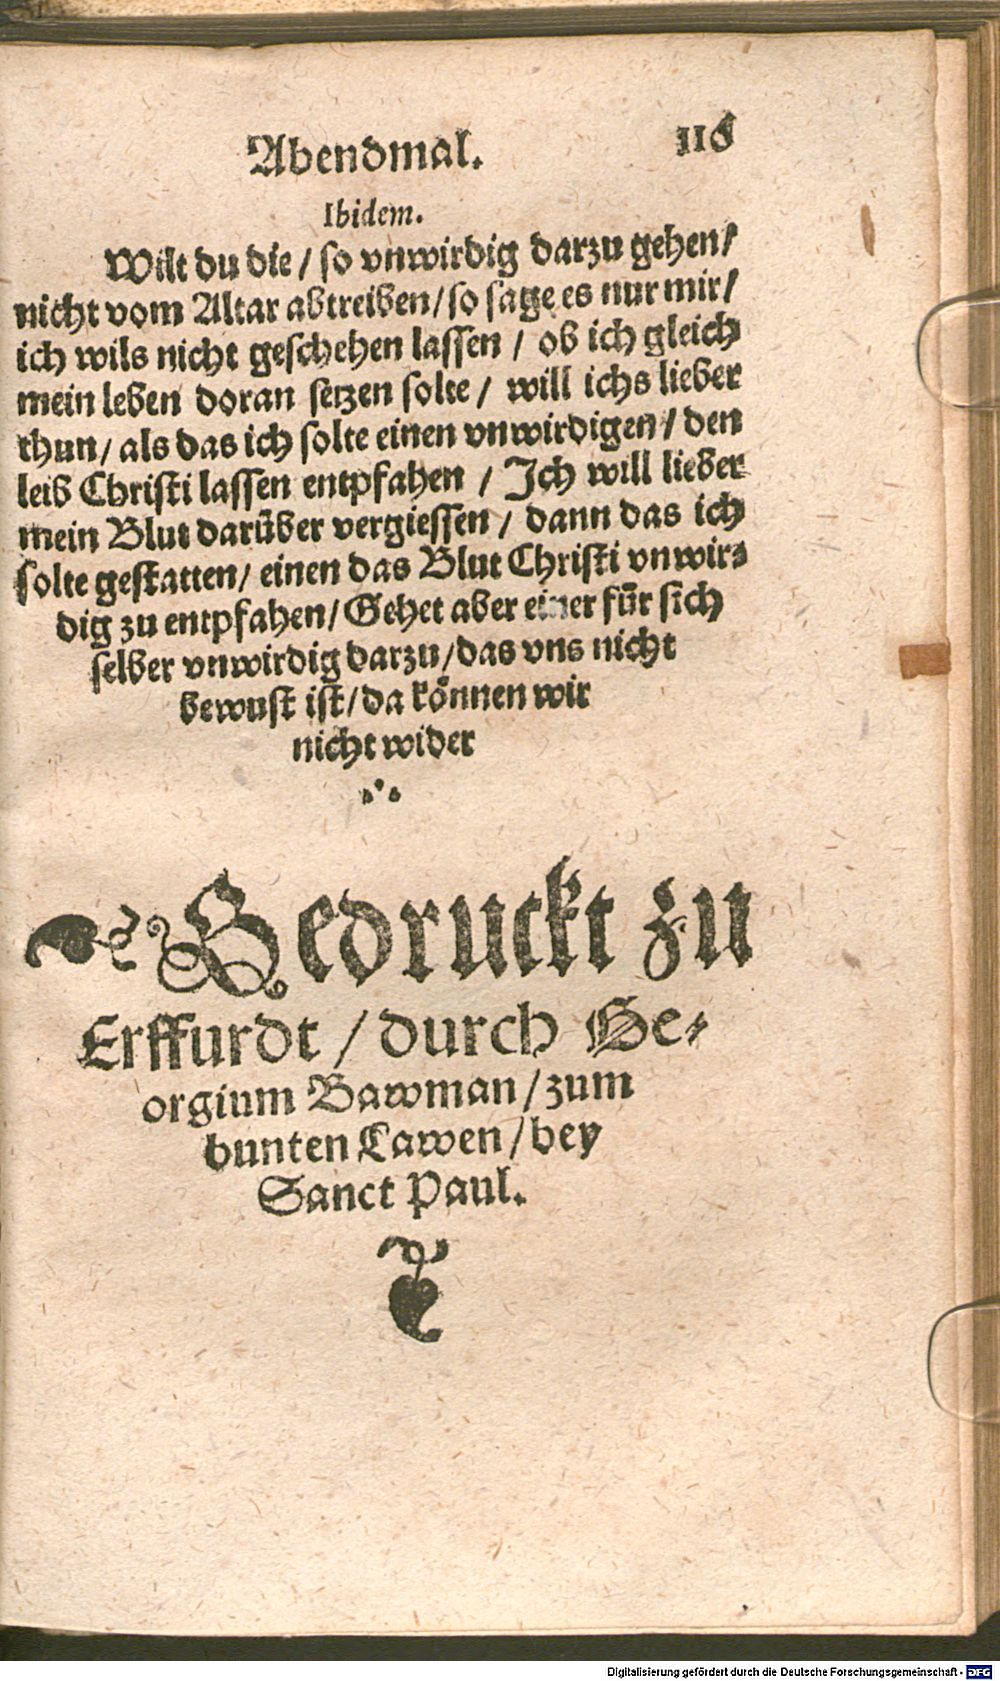 Abendmal. 116
Ibidem.
Wilt du die / so vnwirdig darzu gehen/
nicht vom Altar abtreiben/so sage es nur mir/
ich wils nicht geschehen lassen / ob ich gleich
mein leben doran setzen solte / will ichs lieber
thun/ als das ich solte einen vnwirdigen/ den
leib Christi lassen entpfahen / Ich will lieber
mein Blut darüber vergiessen / dann das ich
solte gestatten/ einen das Blut Christi vnwir⸗
dig zu entpfahen/ Gehet aber einer für sich
selber vnwirdig darzu/das vns nicht
bewust ist/da können wir
nicht wider
Gedruckt zu
Erffurdt / durch Ge⸗
orgium Bawman/zum
bunten Lawen/bey
Sanct Paul.
Digitalisierung gefördert durch die Deutsche Forschungsgemeinschaft - DFG